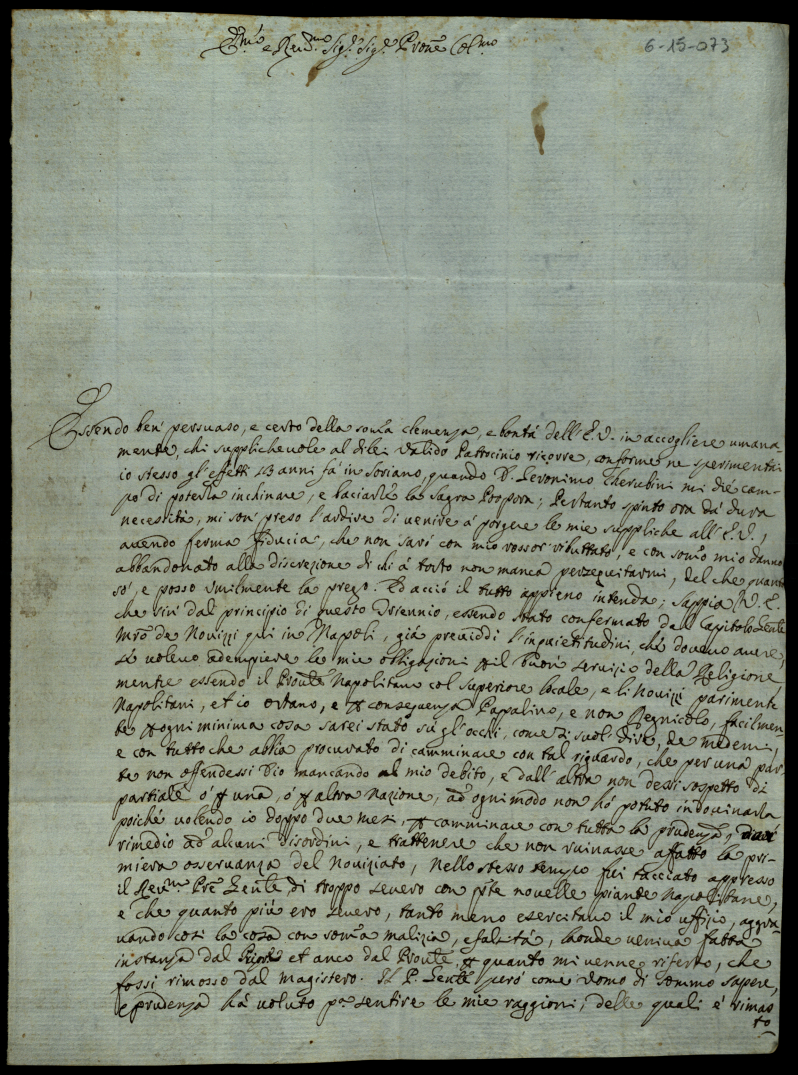 6-15-073
Em̃o e Rev.mo Sig.r Sig.r Pron̄e Col.mo
Essendo ben' persuaso, e certo della som̃a clemenza, e bontà dell'E.V. in accogliere umana-
mente, chi supplichevole al di lei valido Patrocinio ricorre, conforme ne sperimentai
io stesso gl'effetti 13 anni fà in Soriano, quando D. Geronimo Cherubini mi diè cam-
po di poterla inchinare, e baciarle la Sagra Porpora; Pertanto spinto ora dà dura
necessità, mi son' preso l'ardire di venire à porgere le mie suppliche all'E.V.,
avendo ferma fiducia, che non sarò con mio rossor ributtato, e con som̃o mio danno
abbandonato alla discrezione di chi à torto non manca perseguitarmi, del che quanto
sò, e posso umilmente la prego. Ed acciò il tutto appieno intenda; Sappia V.E.
che sin' dal principio di questo Triennio, essendo stato confermato dal Capitolo Gen̄le
Mrõ de Novizzi qui in Napoli, già previddi l'inquietitudini, che dovevo avere,
se volevo adempiere le mie obligazioni p il buon servizio della Religione
mentre essendo il Prov̄le Napolitano col Superiore locale, e li Novizzi parimente
Napolitani, et io ortano, e p conseguenza Pappalino, e non Regnicolo, facilmen-
te p ogni minima cosa sarei stato sù gl'occhi, come si suol dire, de medem̃i,
e con tutto che abbia procurato di camminare con tal riguardo, che per una par-
te non offendessi Dio mancando al mio debito, e dall'altra non dessi sospetto di
partiale ò p una, ò p altra nazione, ad' ogni modo non hò potuto indovinarla
poiché volendo io doppo due mesi, p camminare con tutta la prudenza, dare
rimedio ad' alcuni disordini, e trattenere che non ruinasse affatto la pri-
miera osservanza del Noviziato, nello stesso tempo fui tacciato appresso
il Rev.mo Prẽ Gen̄le di troppo severo con qste novelle piante Napolitane,
e che quanto più ero severo, tanto meno esercitavo il mio uffizio, aggra-
vando così la cosa con som̃a malizia, e falsità, laonde veniva fatta
instanza dal Priore et anco dal Prov̄le, p quanto mi venne riferto, che
fossi rimosso dal magistero. Il P. Gen̄le però come Uomo di sommo sapere,
e prudenza hà voluto p.a sentire le mie raggioni, delle quali è rimas
to